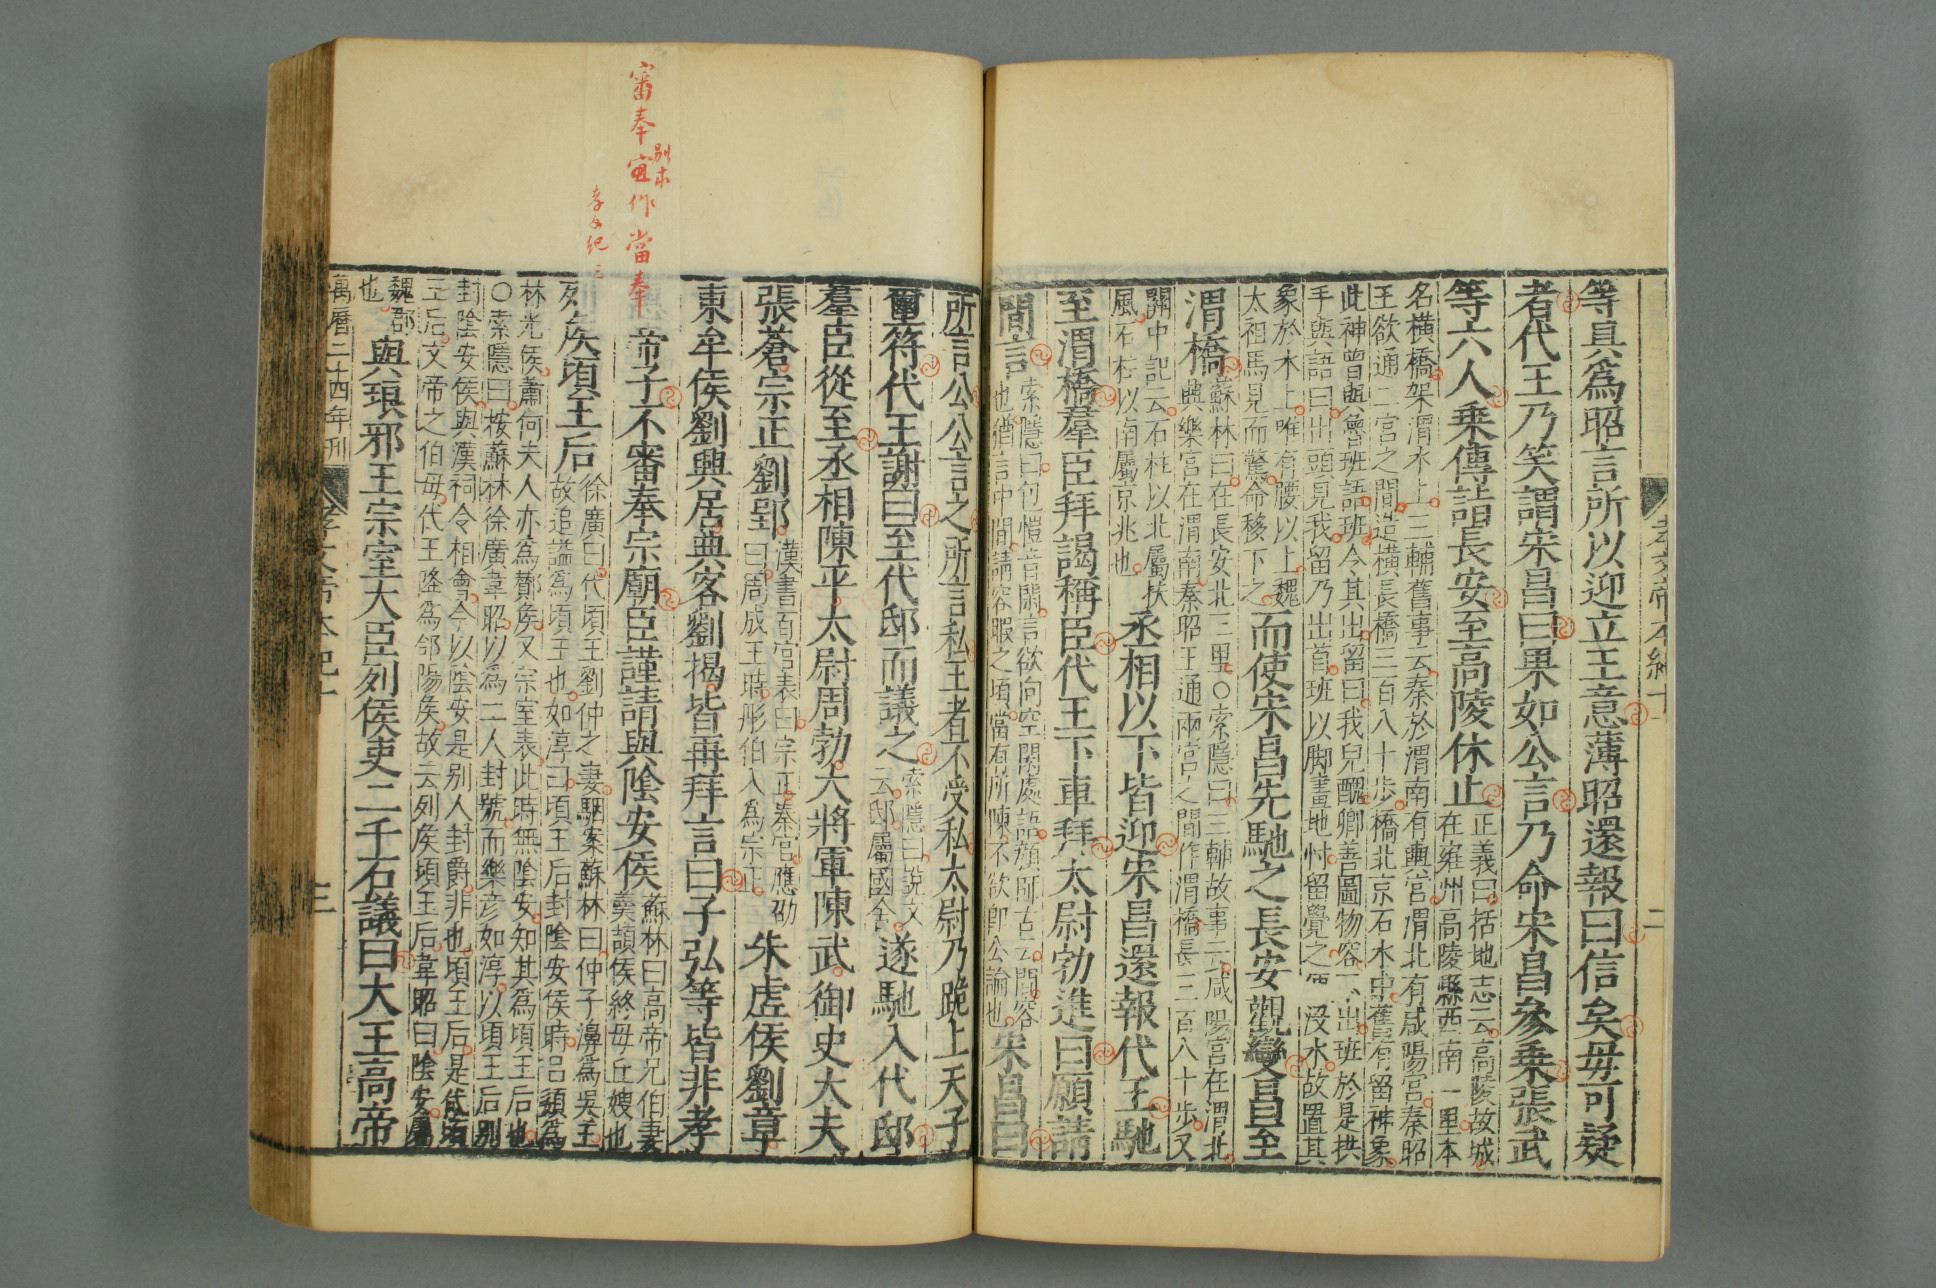 等具爲昭言所以迎立王意薄昭還報曰信矣毋可疑
者代王乃笑謂宋昌曰果如公言乃命宋昌參乗張武
等六人乗傳詣長安至高陵休止
正義曰括地志云高陵故城
在雍州高陵縣西南一里本
名橫橋架渭水上三輔舊事云秦於渭南有輿宮渭北有咸陽宮秦昭
王欲通二宮之間造橫長橋三百八十步橋北京石水中舊有留神象
此神曾與魯班語班令其出留曰我皃醜卿善圖物容不出班於是拱
手與語曰出頭見我留乃出首班以脚畫地忖留覺之 沒水故置其
象於水上唯有腰以上魏
太祖馬見而驚命移下之
而使宋昌先馳之長安觀變昌至
渭橋
蘇林曰在長安北三里○索隱曰三輔故事云咸陽宮在渭北
興樂宮在渭南秦昭王通兩宮之間作渭橋長三百八十步又
關中記云石柱以北屬扶
風石柱以南屬京兆也
丞相以下皆迎宋昌還報代王馳
至渭橋羣臣拜謁稱臣代王下車拜太尉勃進曰願請
間言
索隱曰包愷音閑言欲向空閑處語顔師古云間容
也猶言中間請容暇之頃當有所陳不欲即公論也
宋昌曰
所言公公言之所言私王者不受私太尉乃跪上天子
璽符代王謝曰至代邸而議之
索隱曰說文
云邸屬國舍
遂馳入代邸
羣臣從至丞相陳平太尉周勃大將軍陳武御史大夫
張蒼宗正劉郢
漢書百官表曰宗正秦官應劭
曰周成王時彤伯入爲宗正
朱虛侯劉章
東牟侯劉興居典客劉揭皆再拜言曰子弘等皆非孝
惠帝子不審奉宗廟臣謹請與陰安侯
蘇林曰高帝兄伯妻
羹頡侯終母丘嫂也
列侯頃王后
徐廣曰代頃王劉仲之妻駰案蘇林曰仲子濞爲吳王
故追謚爲頃王也如淳曰頃王后封陰安侯時呂頷爲
林光侯蕭何夫人亦爲酇侯又宗室表此時無陰安知其爲頃王后也
○索隱曰按蘇林徐廣韋昭以爲二人封號而樂彦如淳以頃王后別
封陰安侯與漢祠令相會今以陰安是別人封爵非也頃王后是代頃
王后文帝之伯母代王降爲郃陽侯故云列侯頃王后韋昭曰陰安屬
魏郡
也
與琅邪王宗室大臣列侯吏二千石議曰大王高帝
孝文帝本紀十
二
萬曆二十四年刊
孝文帝本紀十
三
審奉宜作當奉
別本
孝文紀三